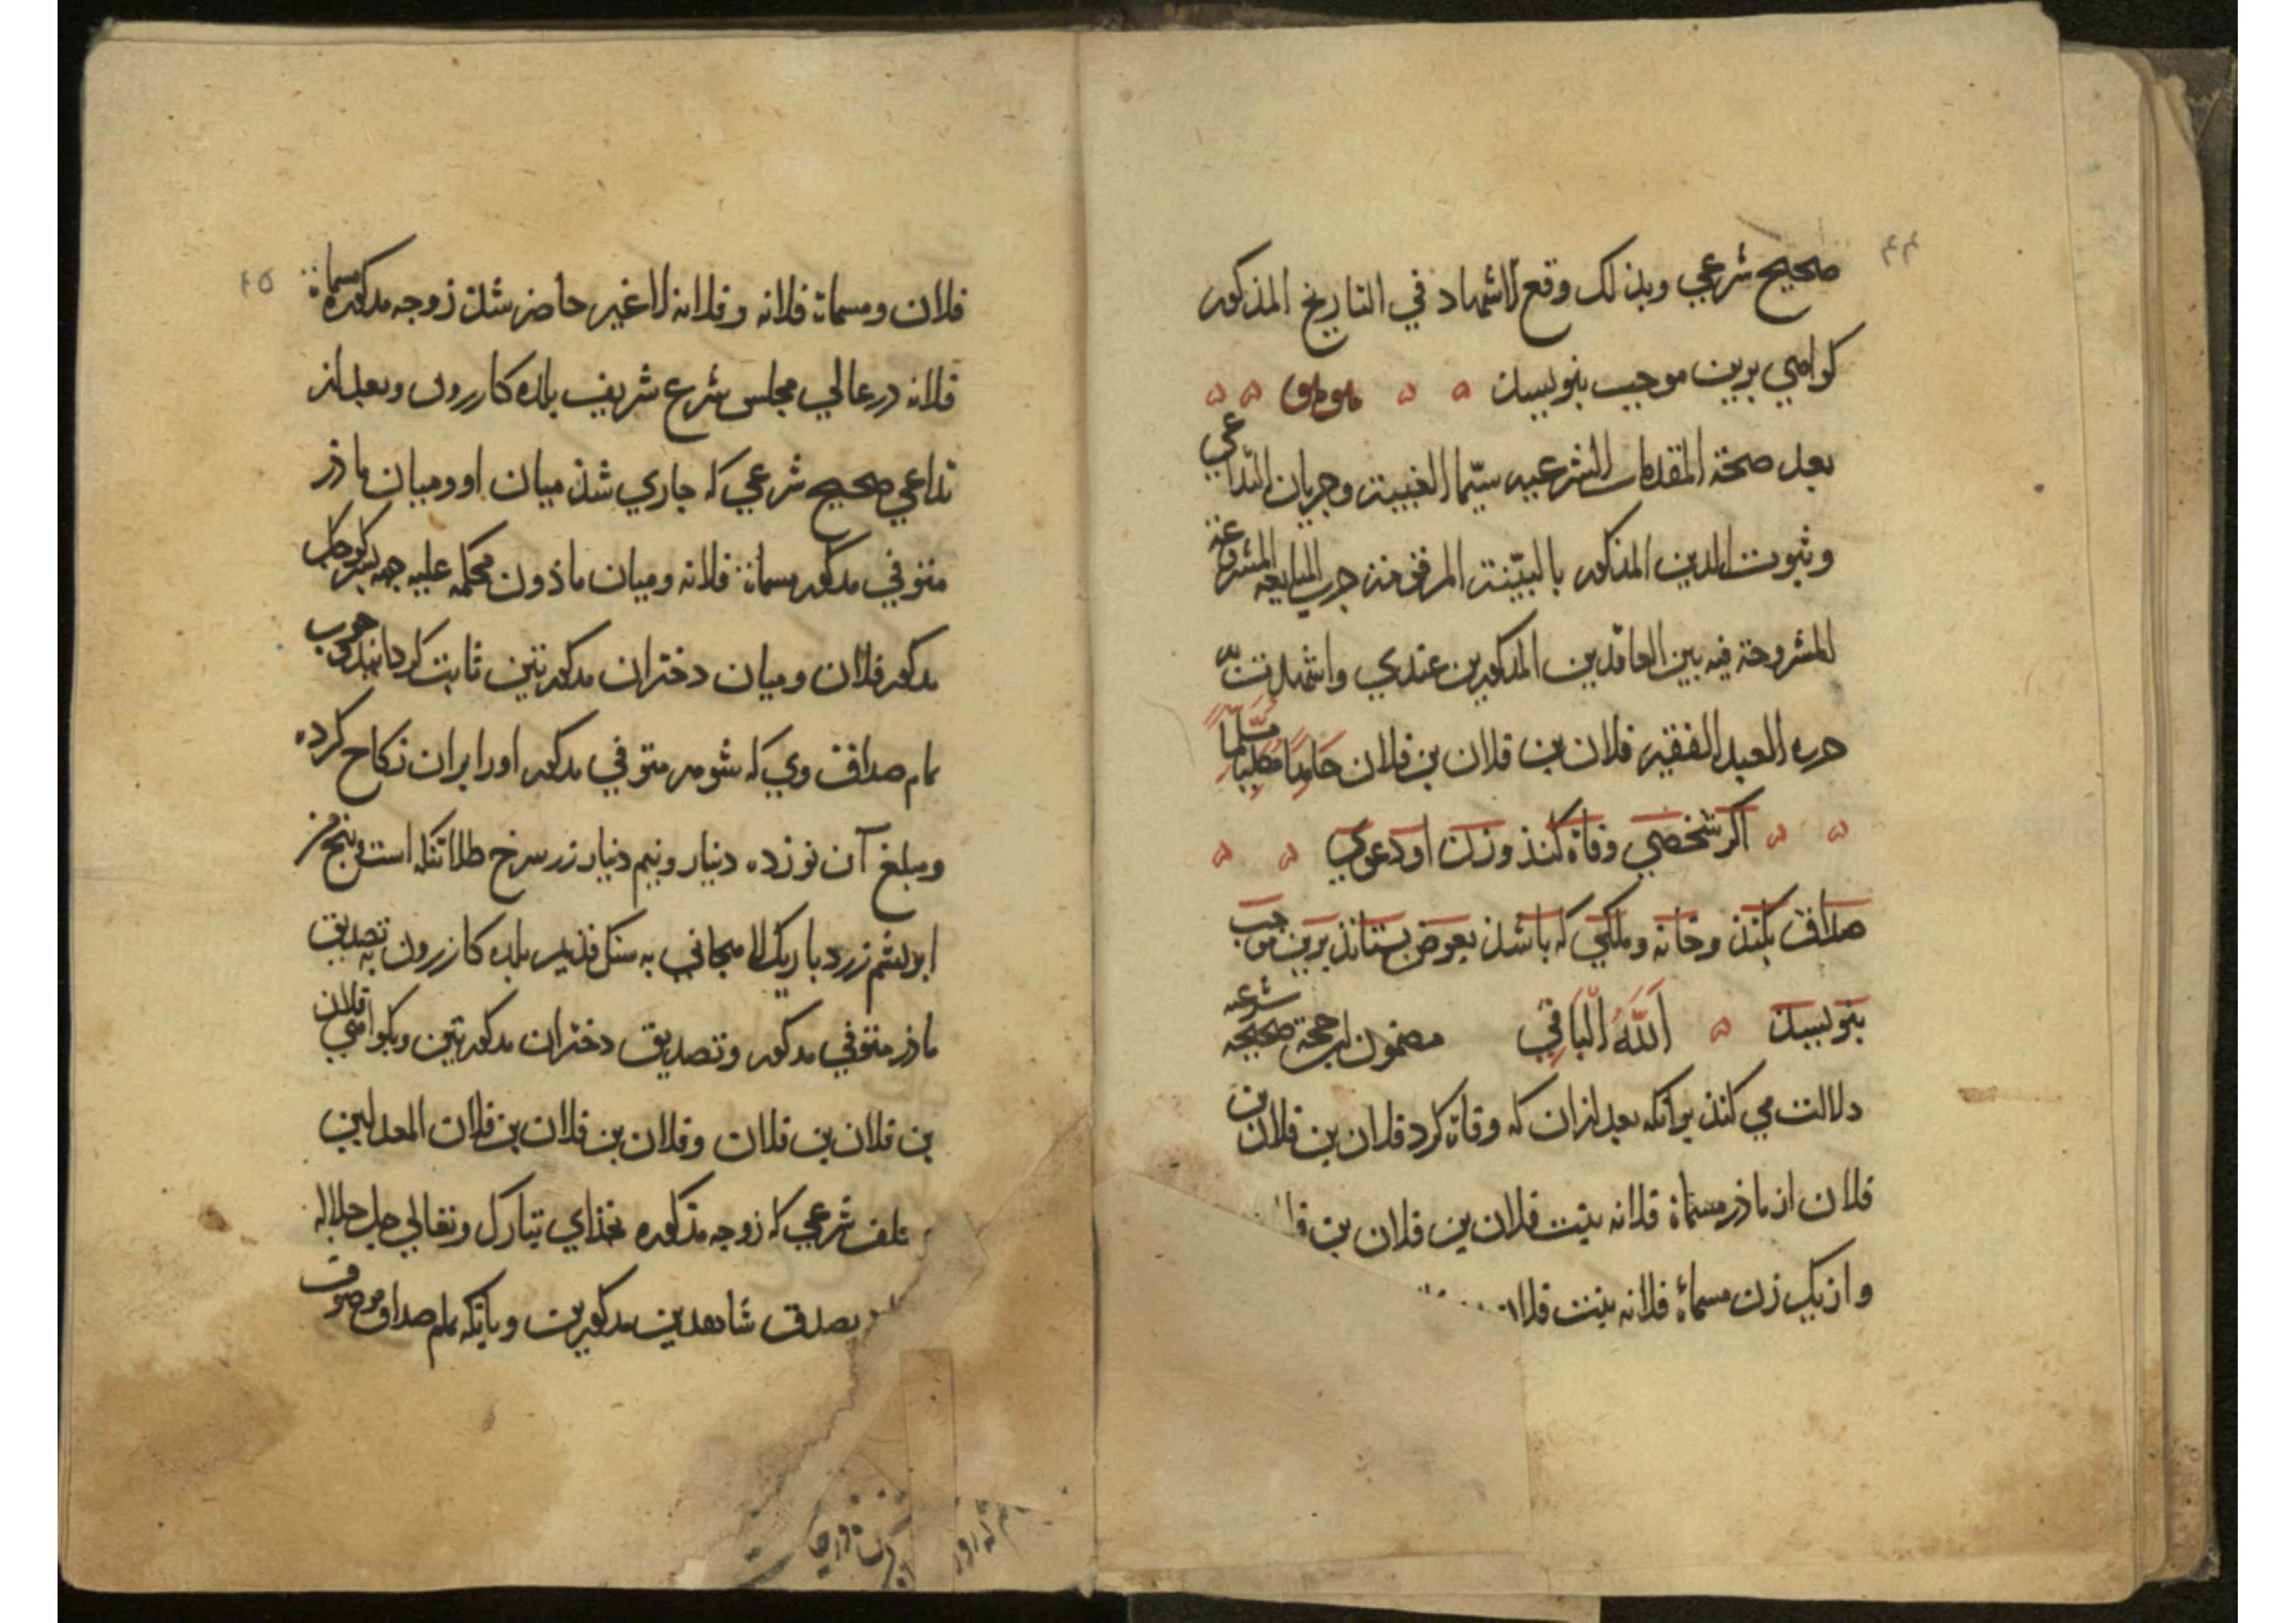 ۴۴
صحيح شرعي وبذلك وقع الاشهاد في التاريخ المذكور
كواهي برين موجب بنويسند
بعد صحة المقدمات الشرعيه سيّما الغيبة وجريان التداعي
وثبوت الدين المذكور بالبيّنة المرقومة جرى المبايعه المشروعة
المشروحة فيه بين العاقدين المذكورين عندي واشهدت به
حرره العبد الفقير فلان بن فلان بن فلان حامدًا مصليًا مسلمًا
اكر شخصي وفاة كنذ وزن او دعوي
صداق بكنذ وخانه وملكي كه باشد بعوض بستانذ برين موجب
بنويسند اللّٰه الباقي مضمون اين حجة صحيحه شرعيه
دلالت مي كنذ برانكه بعد ازان كه وفاة كرد فلان بن فلان بن
فلان از ماذر مسماة فلانه بنت فلان بن فلان بن
وازيك زن مسماة فلانه بنت فلان
۴۵
فلان ومسماة فلانه وفلانه لا غير حاضر شد زوجه مذكوره مسماة
فلانه در عالي مجلس شرع شريف بلده كازرون وبعد از
تداعي صحيح شرعي كه جاري شذ ميان او وميان ماذر
متوفي مذكور مسماة فلانه وميان ماذون محكمه عليه جهه پسر كوچك
مذكور فلان وميان دختران مذكورتين ثابت كردانيد وجوب
تمام صداق وي كه شوهر متوفي مذكور اورا بران نكاح كرده
ومبلغ آن نوزده دينار ونيم دينار زر سرخ طلا تنكه است وپنج من
ابريشم زرد باريك لاميجاني به سنك قديم بلده كازرون به تصديق
ماذر متوفي مذكور وتصديق دختران مذكورتين وبكواهي فلان
بن فلان بن فلان وفلان بن فلان بن فلان المعدلين
شرعي كه زوجه مذكوره بخذاي تبارك وتعالي جل جلاله
بصدق شاهدين مذكورين وبانكه تمام صداق موصوف